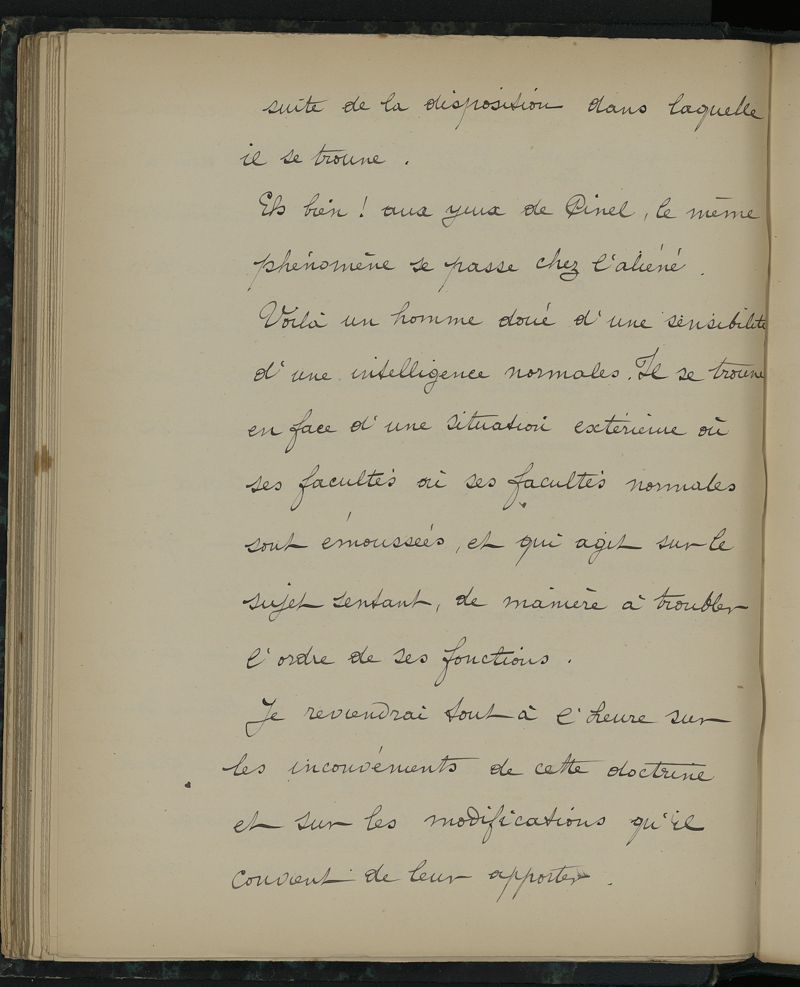 suite de la disposition dans laquelle
il se trouve .
Eh bien ! aux yeux de Pinel, le même
phénomène se passe chez l'aliéné .
Voilà un homme doué d'une sensibilité
d'une intelligence normales. Il se trouve
en face d'une situation extérieure où
ses facultés où ses facultés normales
sont émoussées, et qui agit sur le
sujet sentant, de manière à troubler
l'ordre de ses fonctions .
Je reviendrai tout à l'heure sur
les inconvénients de cette doctrine
et sur les modifications qu'il
convient de leur apporter .